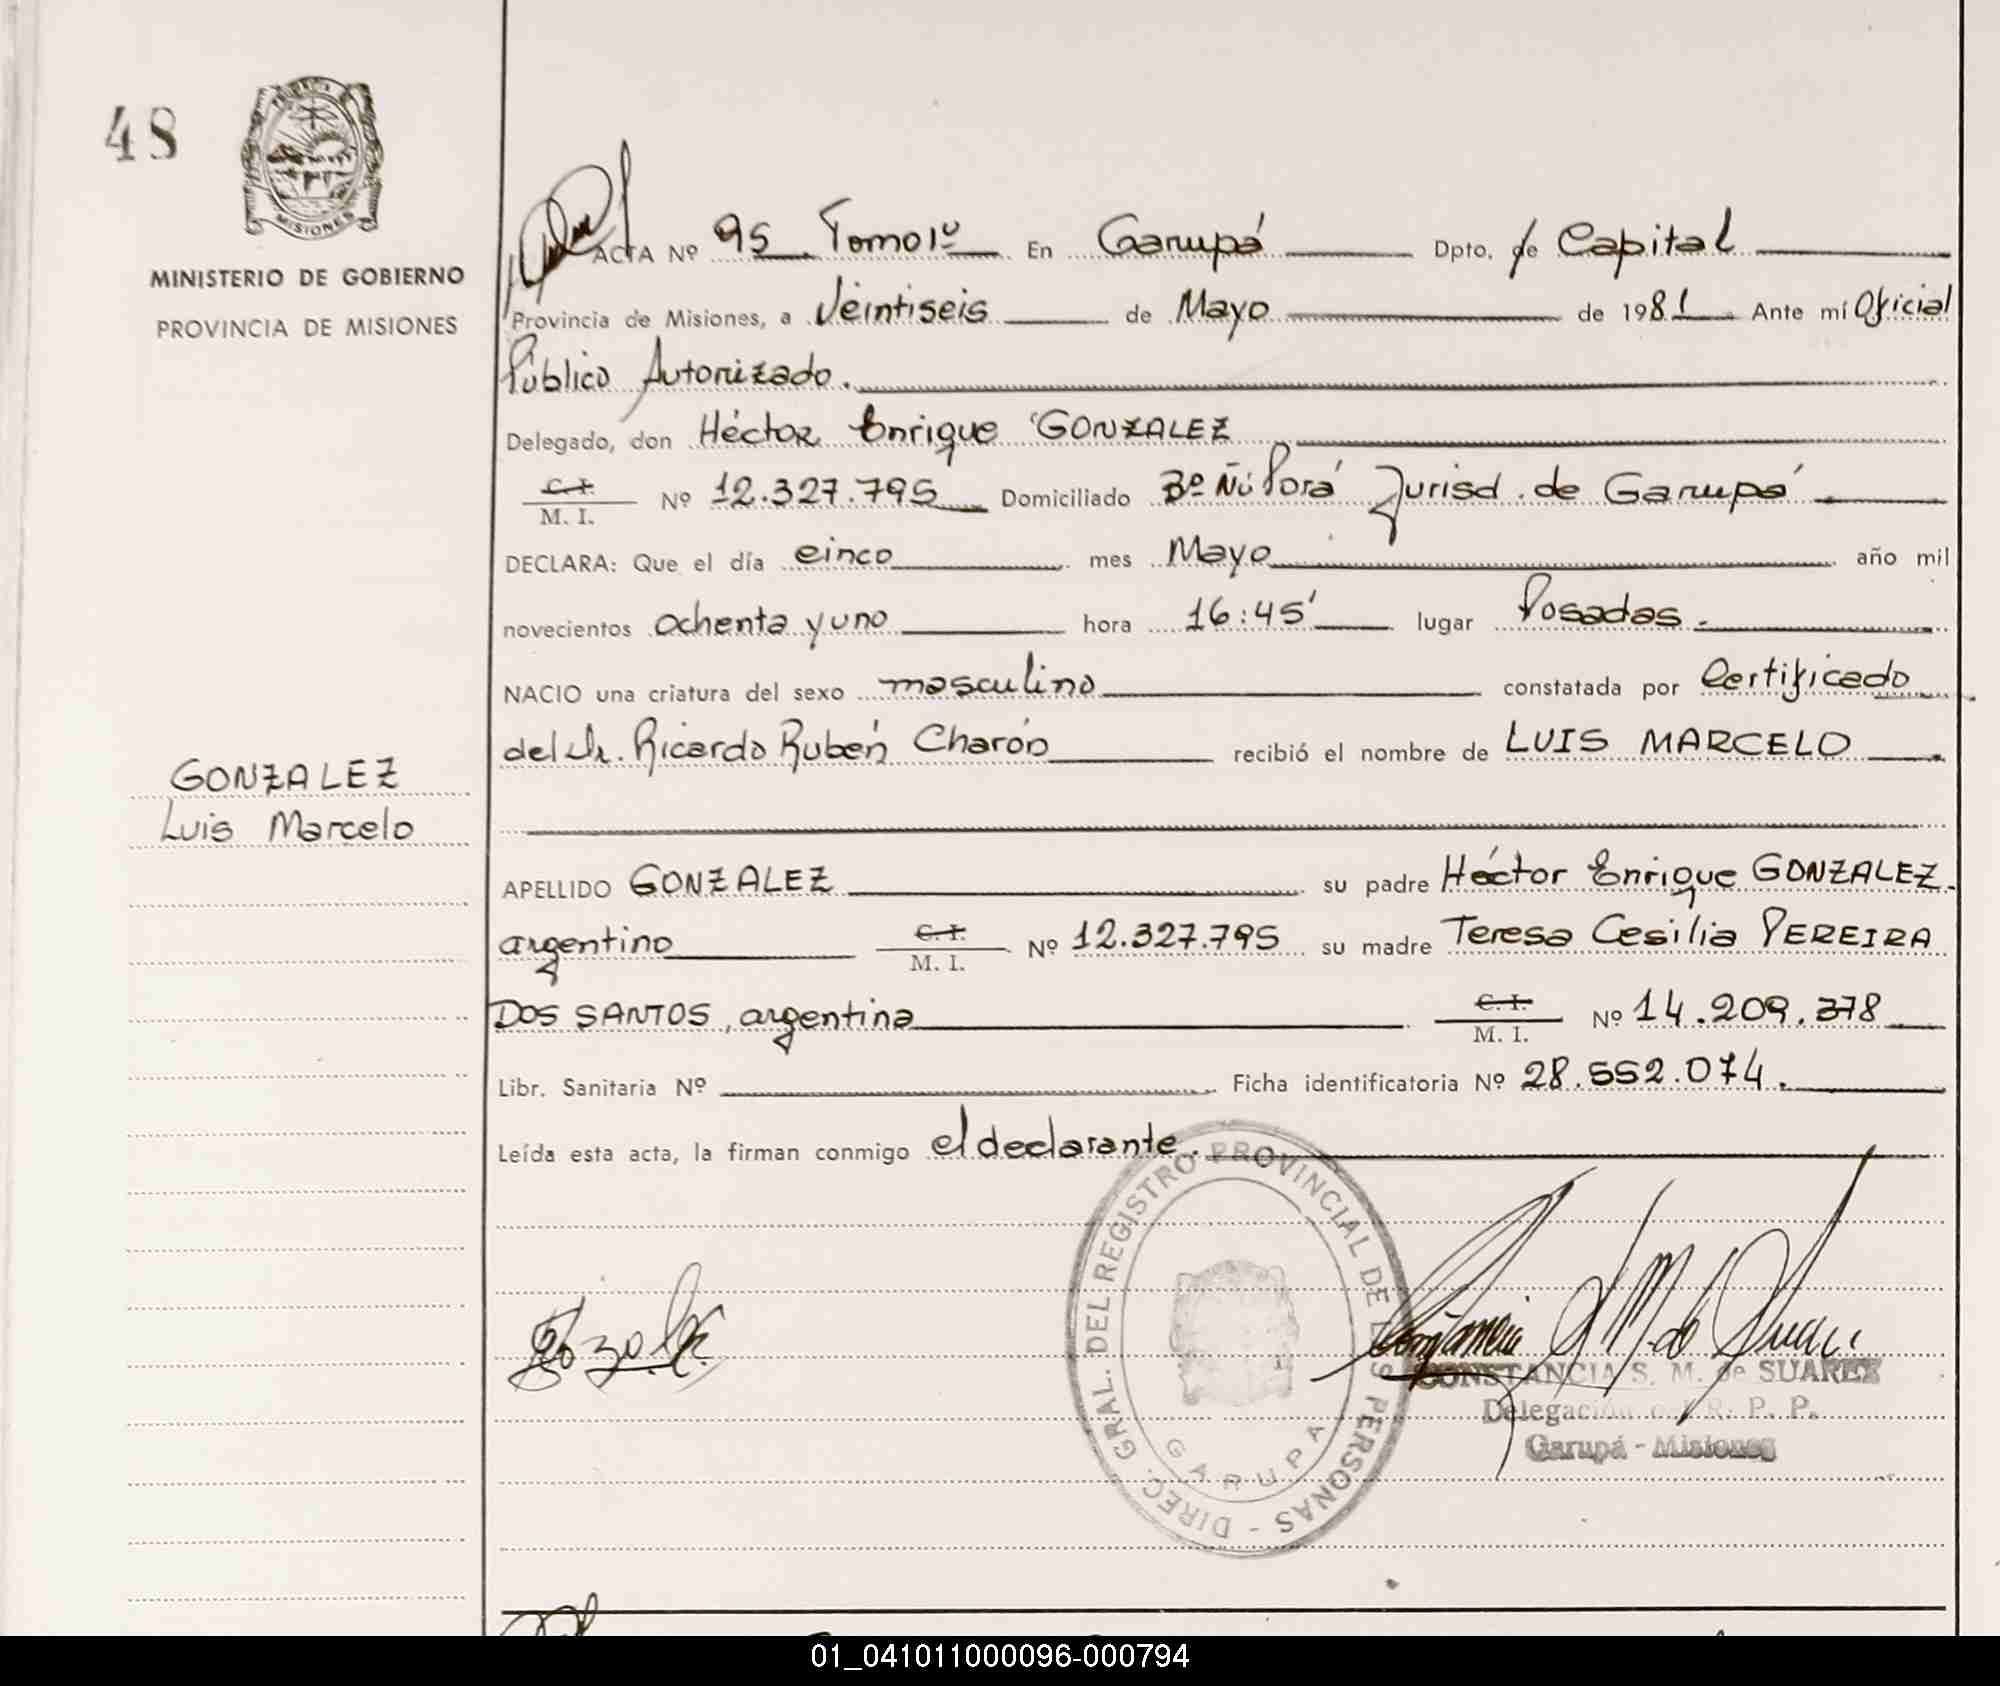 48
MISIONES
MINISTERIO DE GOBIERNO
PROVINCIA DE MISIONES
GONZALEZ
Luis Marcelo
ACTA Nº 95 Tomo 1º En Garupá Dpto. de Capital
Provincia de Misiones, a Veintiseis de Mayo de 1981 Ante mí Oficial
Público Autorizado.
Delegado, don Héctor Enrique GONZALEZ
C. I.
M. I. Nº 12.327.795 Domiciliado Bº Ñú Porá Jurisd. de Garupá
DECLARA: Que el día cinco mes Mayo año mil
novecientos ochenta y uno hora 16:45' lugar Posadas.
NACIO una criatura del sexo masculino constatada por Certificado
del Dr. Ricardo Rubén Charón recibió el nombre de LUIS MARCELO
APELLIDO GONZALEZ su padre Héctor Enrique GONZALEZ
argentino C. I. M. I. Nº 12.327.795 su madre Teresa Cesilia PEREIRA
DOS SANTOS, argentina C. I. M. I. Nº 14.209.378
Libr. Sanitaria Nº Ficha identificatoria Nº 28.552.074.
Leída esta acta, la firman conmigo el declarante.
DIREC. GRAL. DEL REGISTRO PROVINCIAL DE LAS PERSONAS -
GARUPA
CONSTANCIA S. M. de SUAREZ
Delegación R. P. P.
Garupá - Misiones
01_041011000096-000794